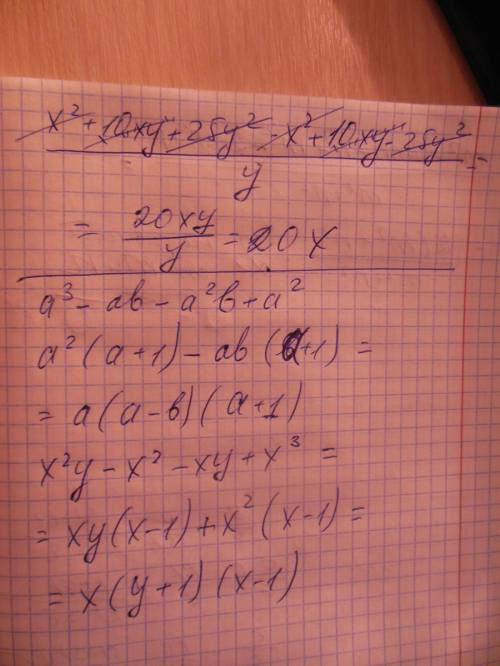 x² + 10xy + 25y² - x² + 10xy - 25y²
y
=
= 20xy / y = 20x
a³ - ab - a²b + a²
a²(a+1) - ab(a+1) =
= a(a-b)(a+1)
x²y - x² - xy + x³ =
= xy(x-1) + x²(x-1) =
= x(y+1)(x-1)